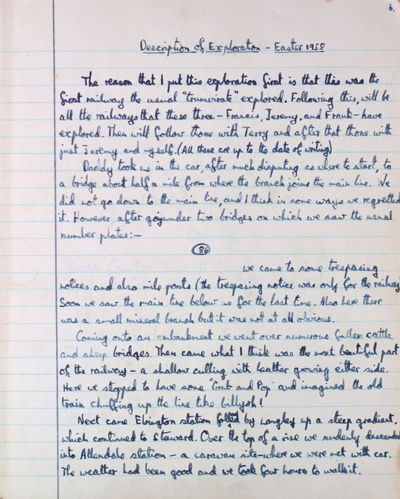 6.
Description of Exploration - Easter 1958
The reason that I put this exploration first is that this was the
first railway the usual "trumvirate" explored. Following this, will be
all the railways that these three - Francis, Jeremy, and Frank - have
explored. Then will follow those with Terry and after that those with
just Jeremy and myself. (All these are up to the date of writing)
Daddy took us in the car, after much disputing as where to start, to
a bridge about half a mile from where the branch joins the main line. We
did not go down to the main line, and I think in some ways we regretted
it. However after going under two bridges on which we saw the usual
number plates:-
86
we came to some trespassing
notices and also mile posts (the trespassing notice was only for the railway)
Soon we saw the main line below us for the last time. Also here there
was a small mineral branch but it was not at all obvious.
Coming onto an embankment we went over numerous fallen cattle
and sheep bridges. Then came what I think was the most beautiful part
of the railways - a shallow cutting with heather growing either side.
Here we stopped to have some "Grub and Pop" and imagined the old
train chuffing up the line like billyoh!
Next came Elrington station followed by Langley up a steep gradient,
which continued to Staward. Over the top of a rise we suddenly descended
into Allendale station - a caravan site - where we were met with car.
The weather had been good and we took four hours to walk it.